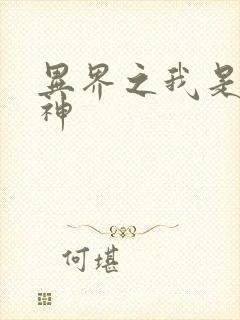 異界之我是
神
何堪